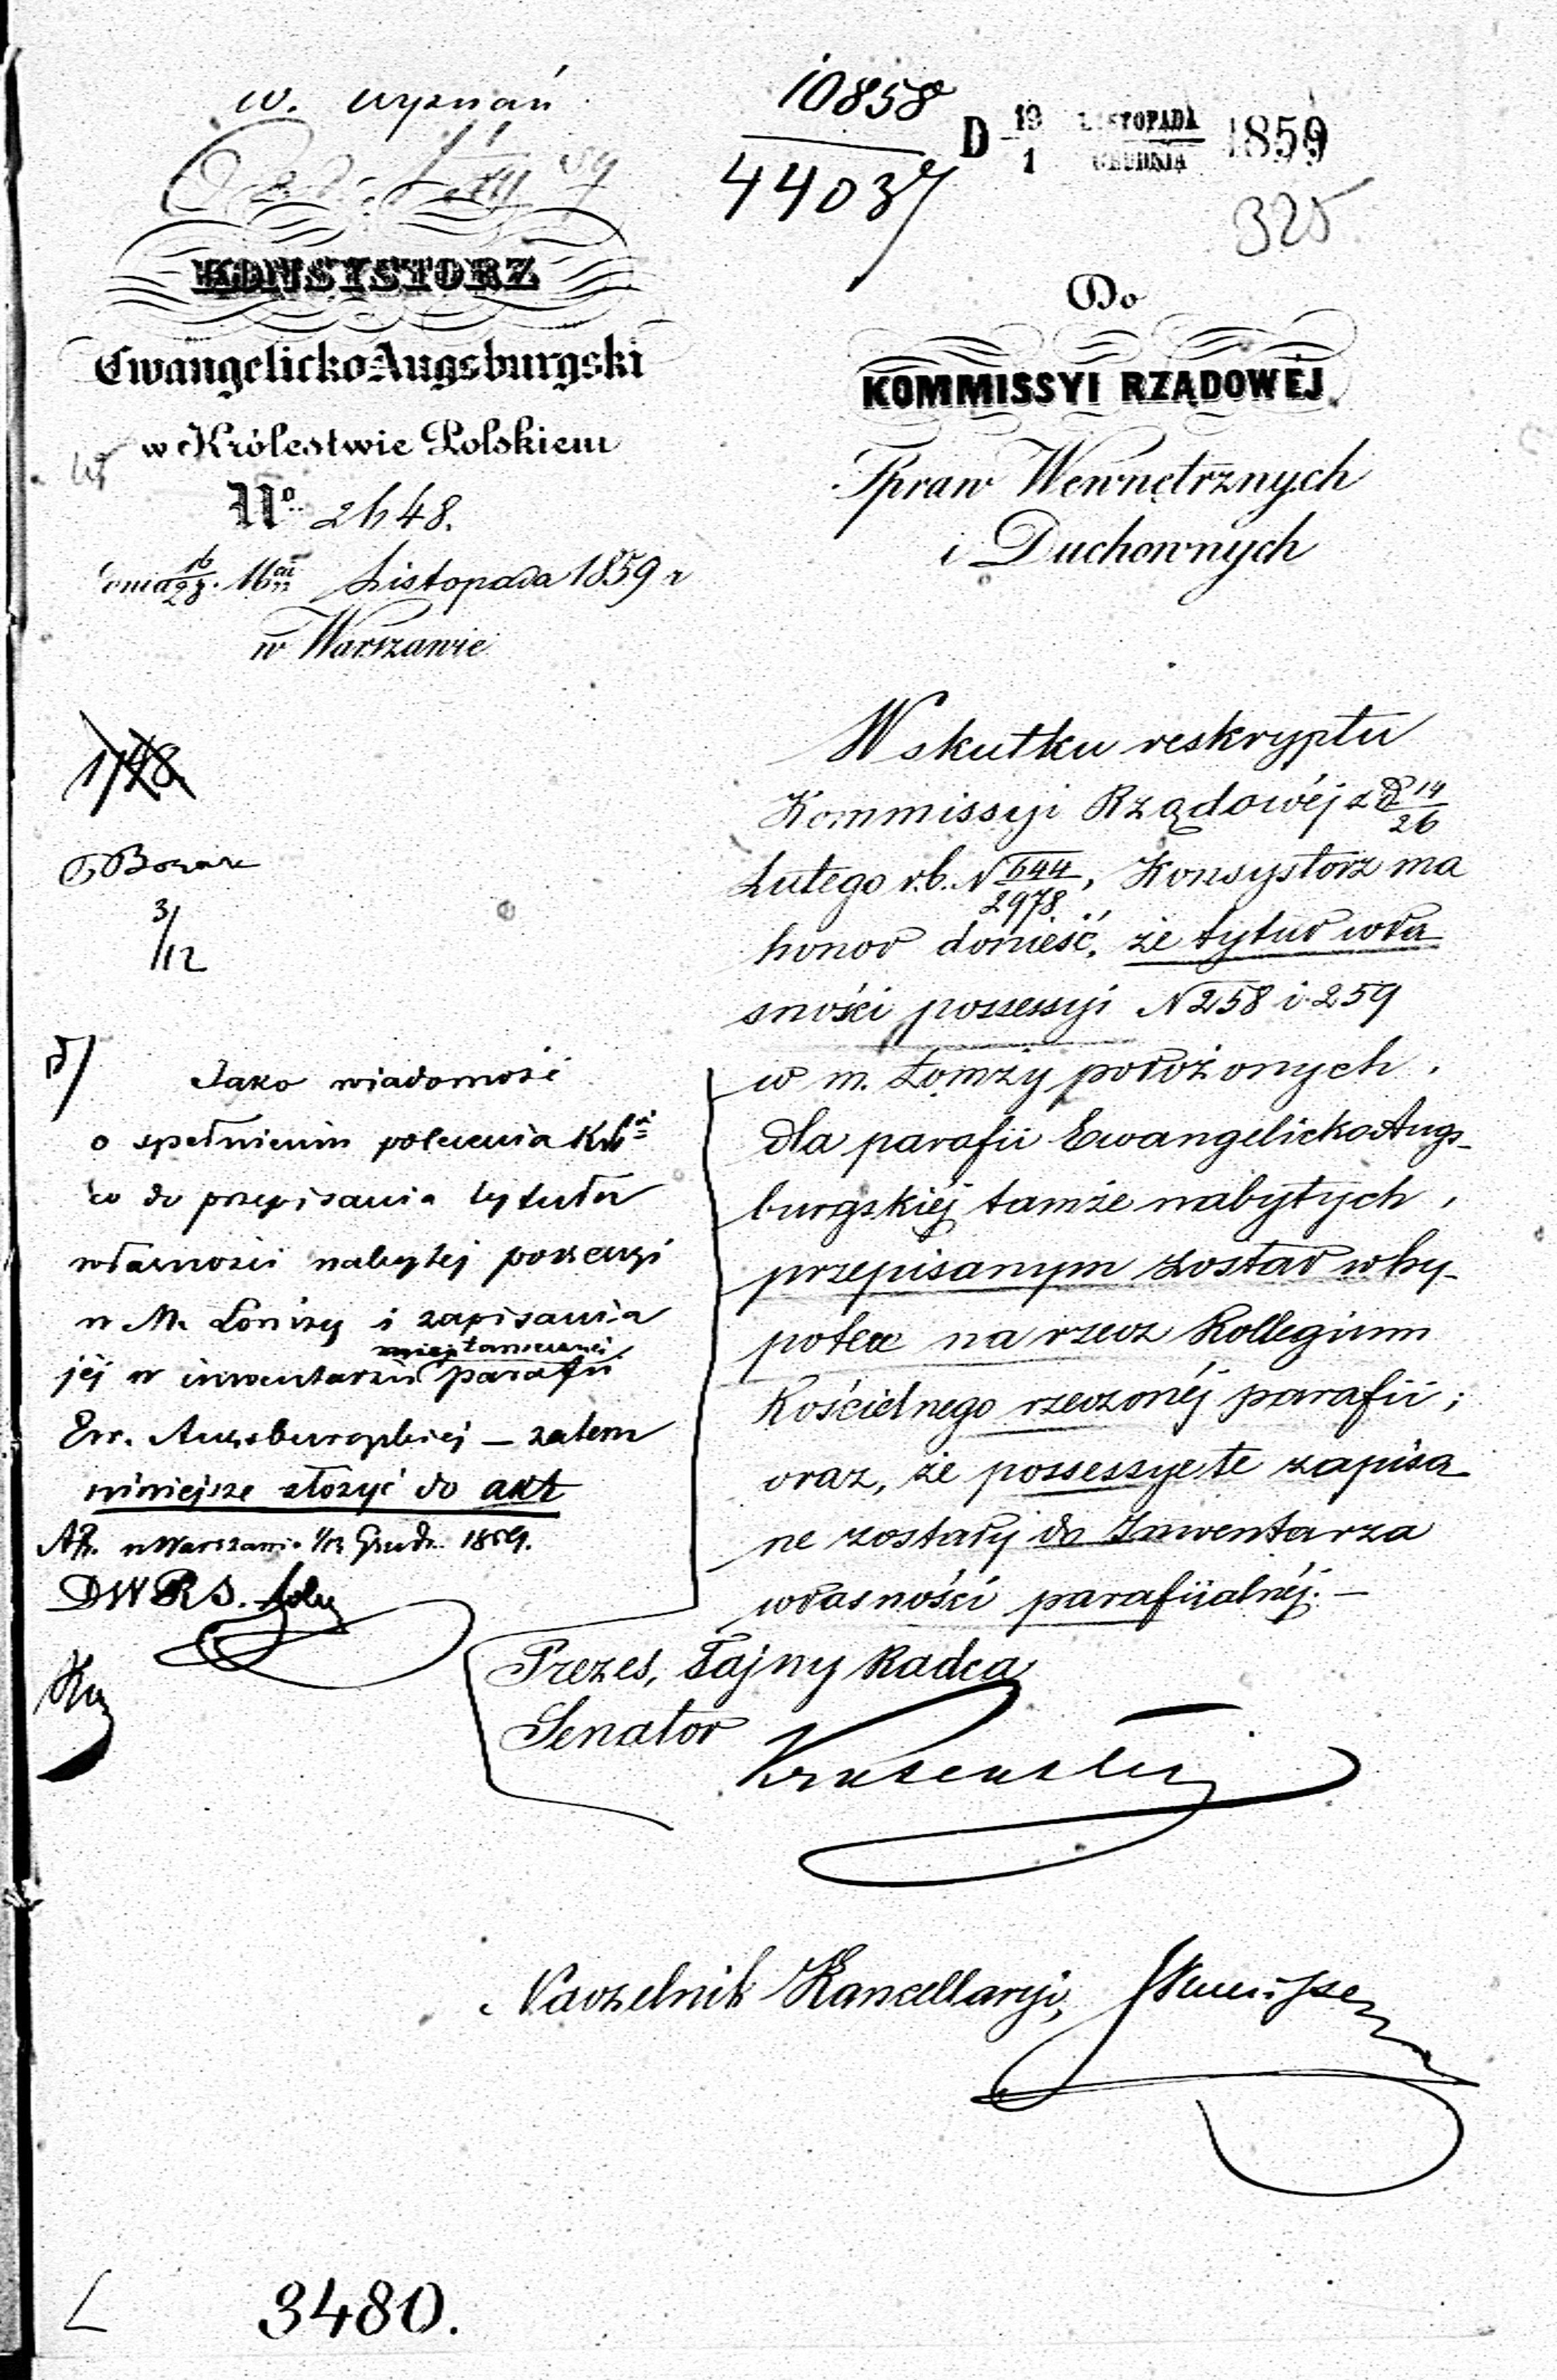 w. wyznań
10858
44037
D 19/1 LISTOPADA/GRUDNIA 1859
325
KONSYSTORZ
Ewangelicko-Augsburgski
w Królestwie Polskiem
No 2648.
Listopada 1859 r
w Warszawie
Do
KOMMISSYI RZĄDOWÉJ
Spraw Wewnętrznych
i Duchownych
1748
3/12
W skutku reskryptu
Kommissyi Rządowéj z d 14/26
Lutego r.b. N 644/2978, Konsystorz ma
honor donieść, że tytuł wła
sności possessyi N 258 i 259
w m. Łomży położonych,
dla parafii Ewangelicko-Augs-
burgskiéj tamże nabytych,
przepisanym został w hy-
potece na rzecz Kollegium
Kościelnego rzeczonéj parafii;
oraz, że possessye te zapisa
ne zostały do Inwentarza
własności parafijalnéj. —
Prezes, Tajny Radca
Senator
Naczelnik Kancellaryi,
Jako wiadomość
o spełnieniu polecenia
co do przepisania tytułu
własności nabytej possessyi
w M. Łomży i zapisania
jéj w inwentarzu parafii
Ew. Augsburgskiej — zatem
niniejsze złożyć do akt
w Warszawie Grud. 1859.
DWRS.
3480.